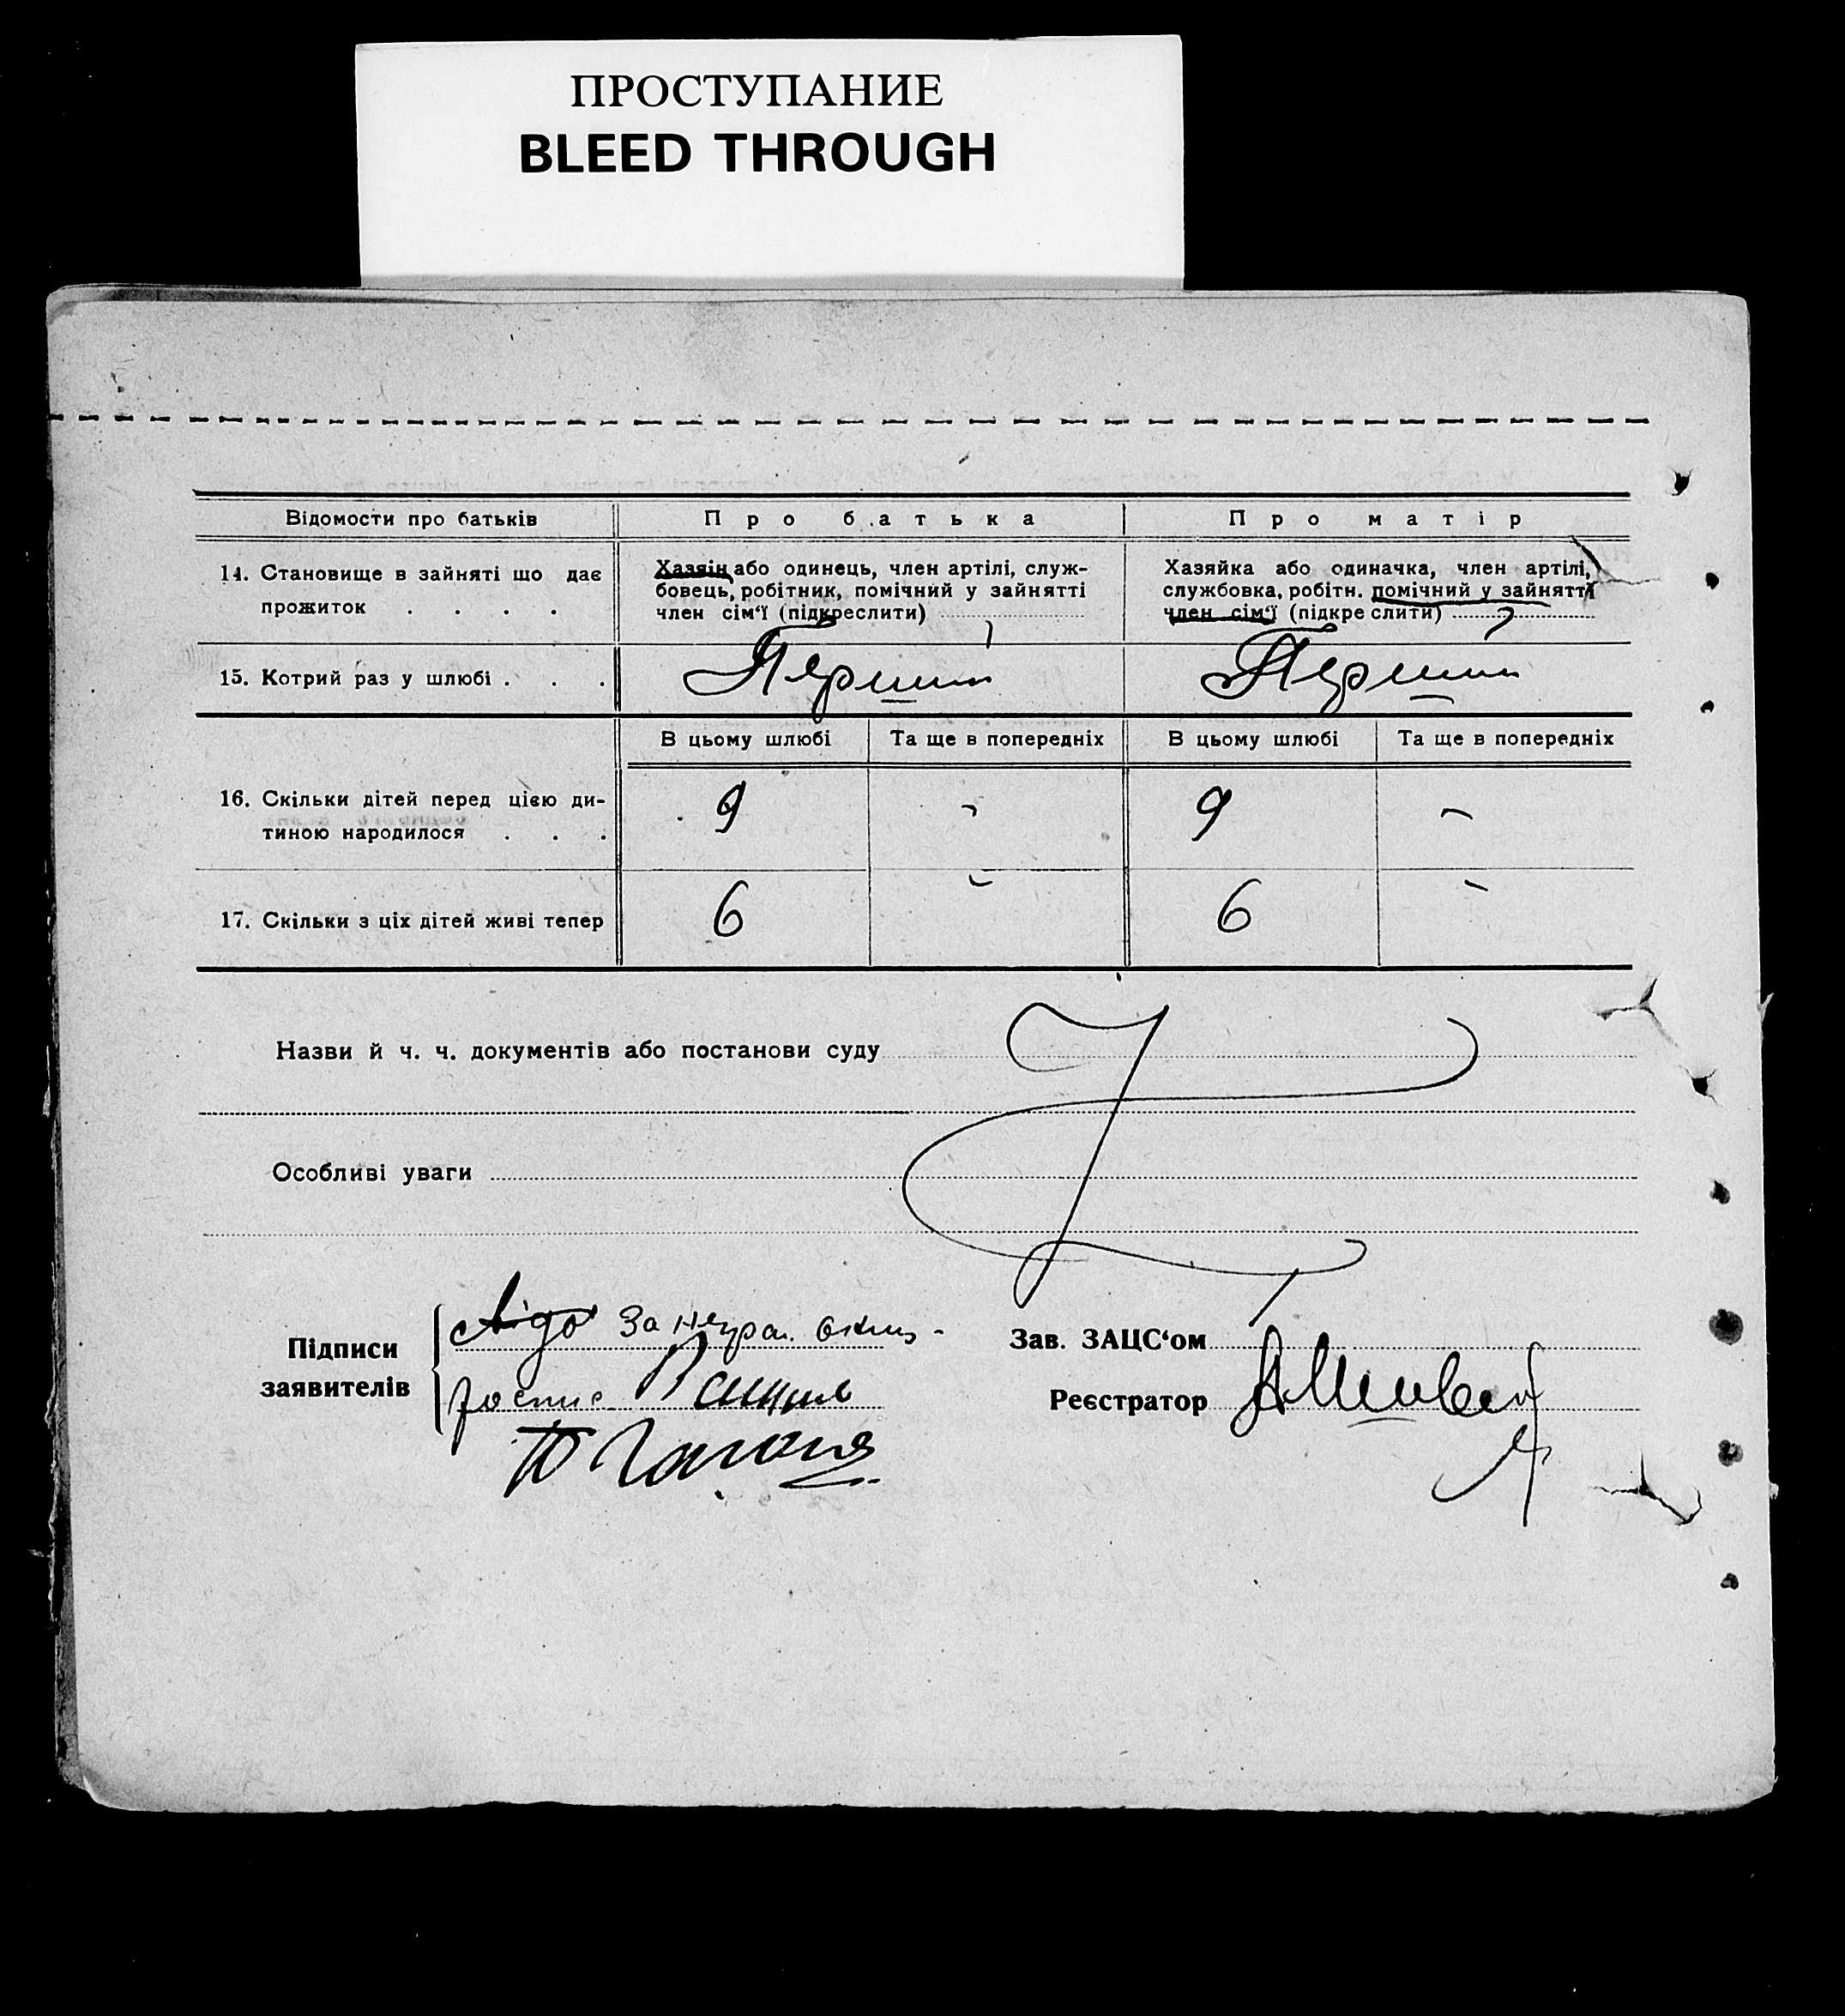 ПРОСТУПАНИЕ
BLEED THROUGH
Відомости про батьків
Про батька
Про матір
14. Становище в зайняті що дає
прожиток . . . .
Хазяін або одинець, член артілі, служ-
бовець, робітник, помічний у зайнятті
член сім‘ї (підкреслити)
Хазяйка або одиначка, член артілі,
службовка, робітн. помічний у зайнятті
член сім‘ї (підкреслити)
15. Котрий раз у шлюбі . . .
Перший
Перший
В цьому шлюбі
Та ще в попередніх
В цьому шлюбі
Та ще в попередніх
16. Скільки дітей перед цією ди-
тиною народилося . . .
9
-
9
-
17. Скільки з ціх дітей живі тепер
6
-
6
-
Назви й ч. ч. документів або постанови суду
Особливі уваги
Підписи
заявителів
За
Зав. ЗАЦС‘ом
Реєстратор